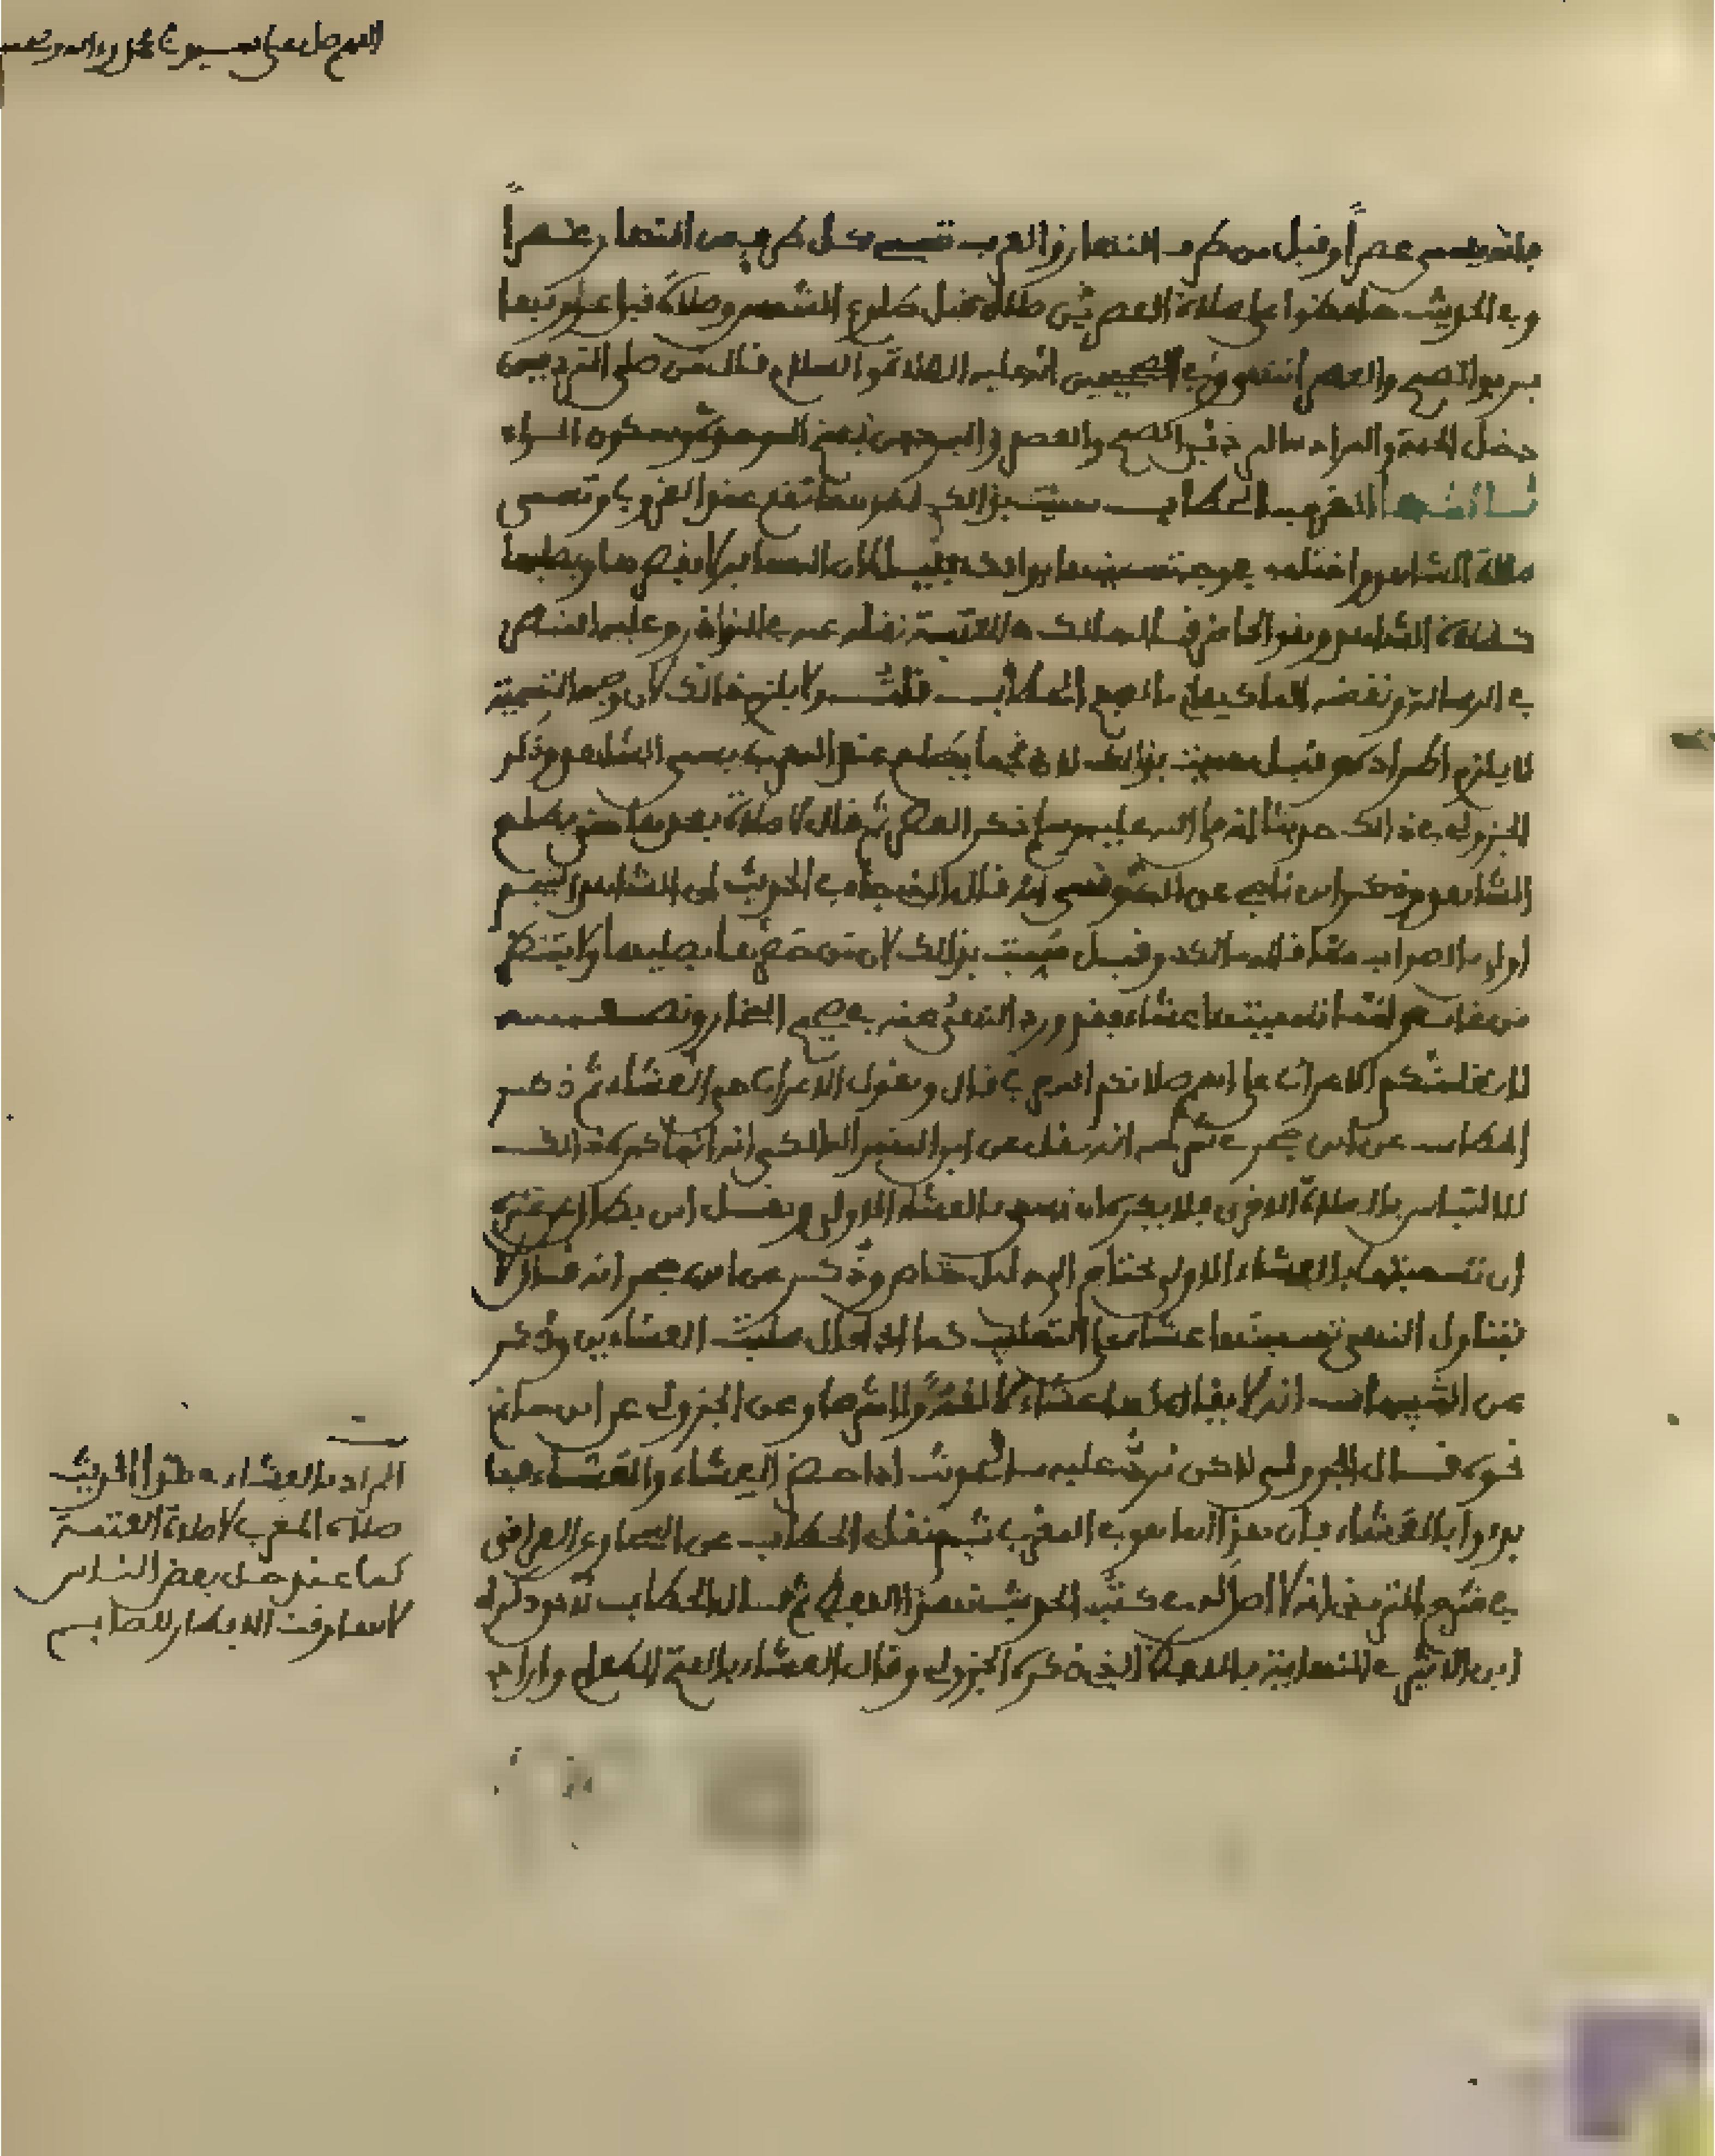 اللهم صل على سيدنا محمد وءاله وصحبه
فانه يسمى عصرا وقيل من طرف النهار والعرب تسمي كل طرف من النهار عصرا
وفي الحديث حافظوا على صلاة العصرين صلاة قبل طلوع الشمس وصلاة قبل غروبها
يريد الصبح والعصر انتهى وفي الصحيحين انه عليه الصلاة والسلام قال من صلى البردين
دخل الجنة والمراد بالبردين الصبح والعصر والبردين بفتح الموحدة وسكون الراء
ثالثها المغرب الحطاب سميت بذالك لكونها تقع عند الغروب وتسمى
صلاة الشاهد واختلف في وجه تسميتها بذالك فقيل لان المسافر لا يقصرها ويصليها
كصلاة الشاهد وهو الحاضر قاله مالك في العتبية نقله عنه في النوادر وعليه اقتصر
في الرسالة ونقضه الفاكهاني بالصبح الحطاب قلت ولا يلزم ذالك لان وجه التسمية
لا يلزم اطراده وقيل سميت بذالك لان نجما يطلع عند المغرب يسمى الشاهد وذكر
الجزولي في ذالك حديثا انه صلى الله عليه وسلم ذكر العصر ثم قال لا صلاة بعدها حتى يطلع
الشاهد وذكر ابن ناجي عن التونسي انه قال الذي جاء في الحديث ان الشاهد النجم
اولى بالصواب مما قاله مالك وقيل سميت بذلك لان من حضرها يصليها ولا ينتظر
من غاب واما تسميتها عشاء فقد ورد النهي عنه في صحيح البخاري ونصه
لا يغلبنكم الاعراب على اسم صلاتكم المغرب قال وتقول الاعراب هي العشاء ثم ذكر
الحطاب عن ابن حجر في شرحه انه نقل عن ابن المنير المالكي انه انما كره ذالك
للالتباس بالصلاة الاخرى فلا يكره ان تسمى بالعشاء الاولى ونقل ابن بطال عن غيره
ان تسميتها بالعشاء الاولى يحتاج الى دليل خاص وذكر عن ابن حجر انه قال لا
يتناول النهي تسميتها عشاء على التغليب كما اذا قال صليت العشاءين وذكر
عن انه لا يقال لها عشاء لا لغة ولا شرعا وعن الجزولي عن ابن
نحوه قال الجزولي لاكن نرد عليه بالحديث اذا حضر العشاء والعشاء فا
بدءوا بالعشاء فان هذا انما هو في المغرب ثم نقل الحطاب عن العراقي
في شرح الترمذي انه لا اصل له في كتب الحديث بهذا اللفظ ثم قال الحطاب قد ذكره
ابن الاثير في النهاية باللفظ الذي ذكره الجزولي وقال العشاء بالفتح الطعام واراد
المراد بالعشاء في هذا الحديث
صلاة المغرب لا صلاة العتمة
كما عند جل بعض الناس
لانها وقت الافطار للصايم